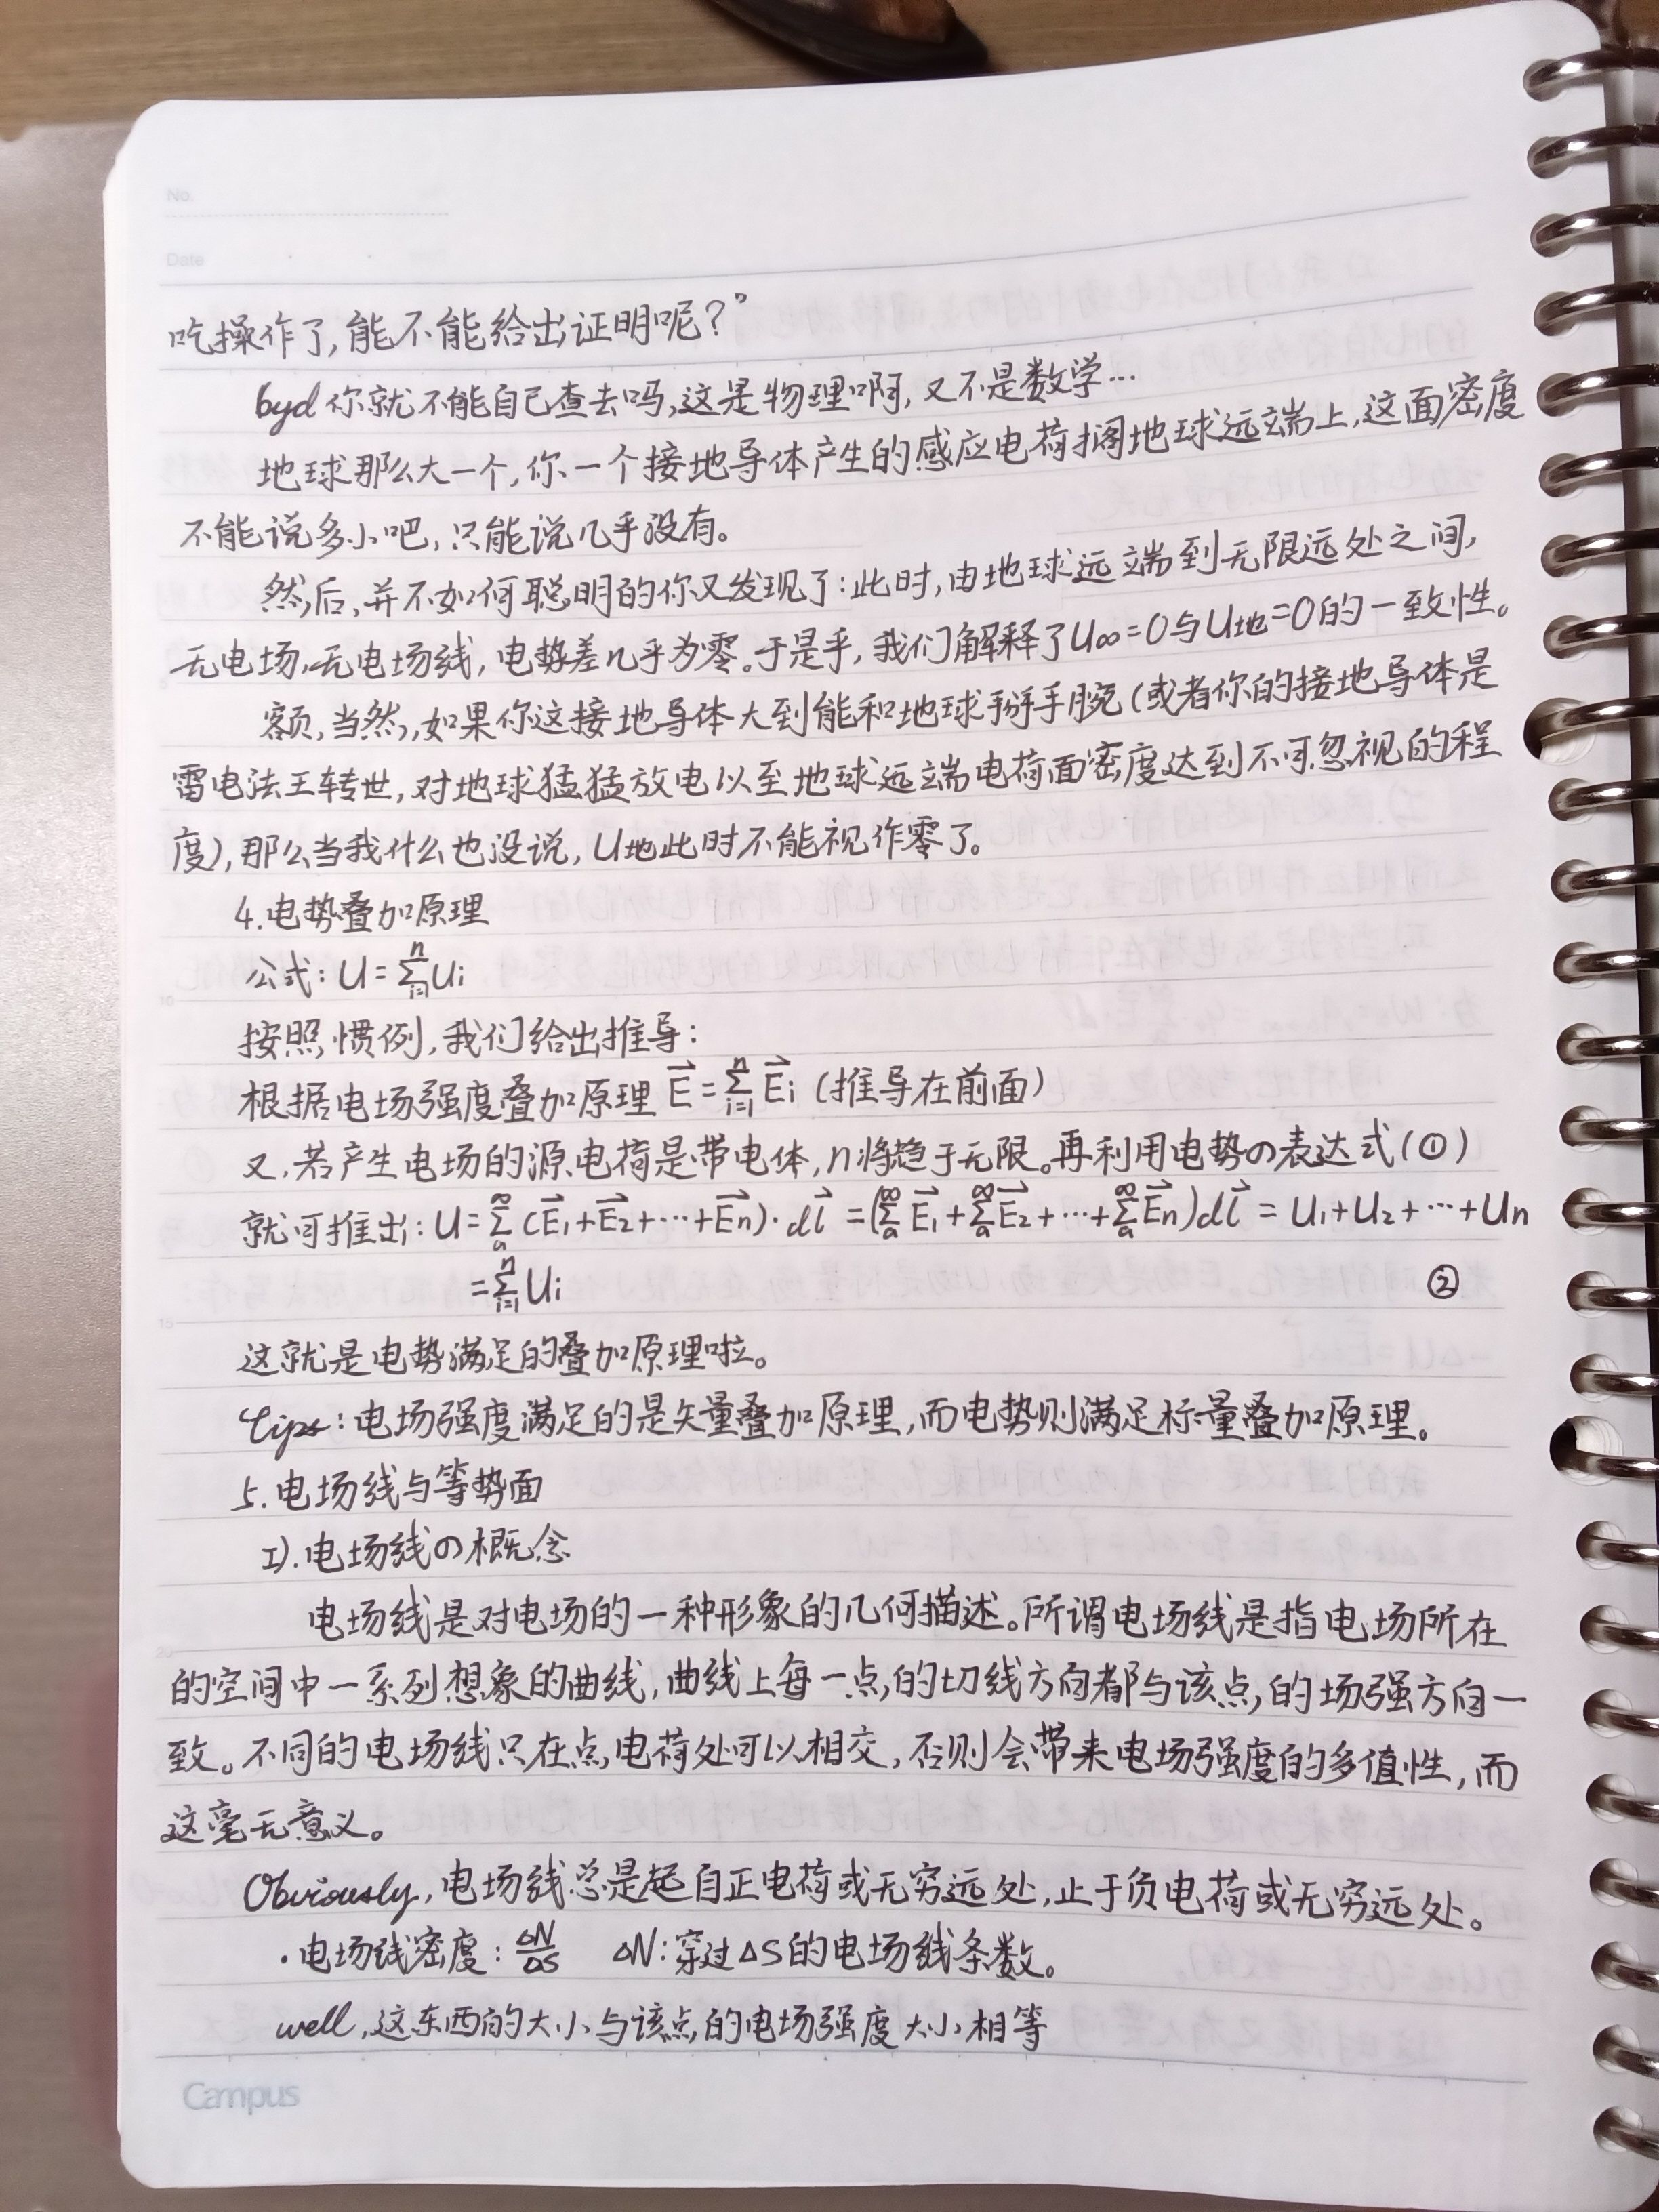 No.
Date
吃操作了,能不能给出证明呢?”
byd你就不能自己查去吗,这是物理啊,又不是数学…
地球那么大一个,你一个接地导体产生的感应电荷搁地球远端上,这面密度
不能说多小吧,只能说几乎没有。
然后,并不如何聪明的你又发现了:此时,由地球远端到无限远处之间,
无电场,无电场线,电势差几乎为零。于是乎,我们解释了U∞=0与U地=0的一致性。
额,当然,如果你这接地导体大到能和地球掰手腕(或者你的接地导体是
雷电法王转世,对地球猛猛放电以至地球远端电荷面密度达到不可忽视的程
度),那么当我什么也没说,U地此时不能视作零了。
4.电势叠加原理
公式:U=\sum_{i=1}^{n}Ui
按照惯例,我们给出推导:
根据电场强度叠加原理\vec{E}=\sum_{i=1}^{n}\vec{E}i(推导在前面)
又,若产生电场的源电荷是带电体,n将趋于无限。再利用电势の表达式(①)
就可推出:U=\sum_{a}^{∞}(\vec{E}_1+\vec{E}_2+⋯+\vec{E}_n)·d\vec{l}=(\sum_{a}^{∞}\vec{E}_1+\sum_{a}^{∞}\vec{E}_2+⋯+\sum_{a}^{∞}\vec{E}_n)d\vec{l}=U_1+U_2+⋯+U_n
=\sum_{i=1}^{n}Ui ②
这就是电势满足的叠加原理啦。
tips:电场强度满足的是矢量叠加原理,而电势则满足标量叠加原理。
5.电场线与等势面
I).电场线の概念
电场线是对电场的一种形象的几何描述。所谓电场线是指电场所在
的空间中一系列想象的曲线,曲线上每一点的切线方向都与该点的场强方向一
致。不同的电场线只在点电荷处可以相交,否则会带来电场强度的多值性,而
这毫无意义。
Obviously,电场线总是起自正电荷或无穷远处,止于负电荷或无穷远处。
·电场线密度:\frac{ΔN}{ΔS} ΔN:穿过ΔS的电场线条数。
well,这东西的大小与该点的电场强度大小相等
Campus